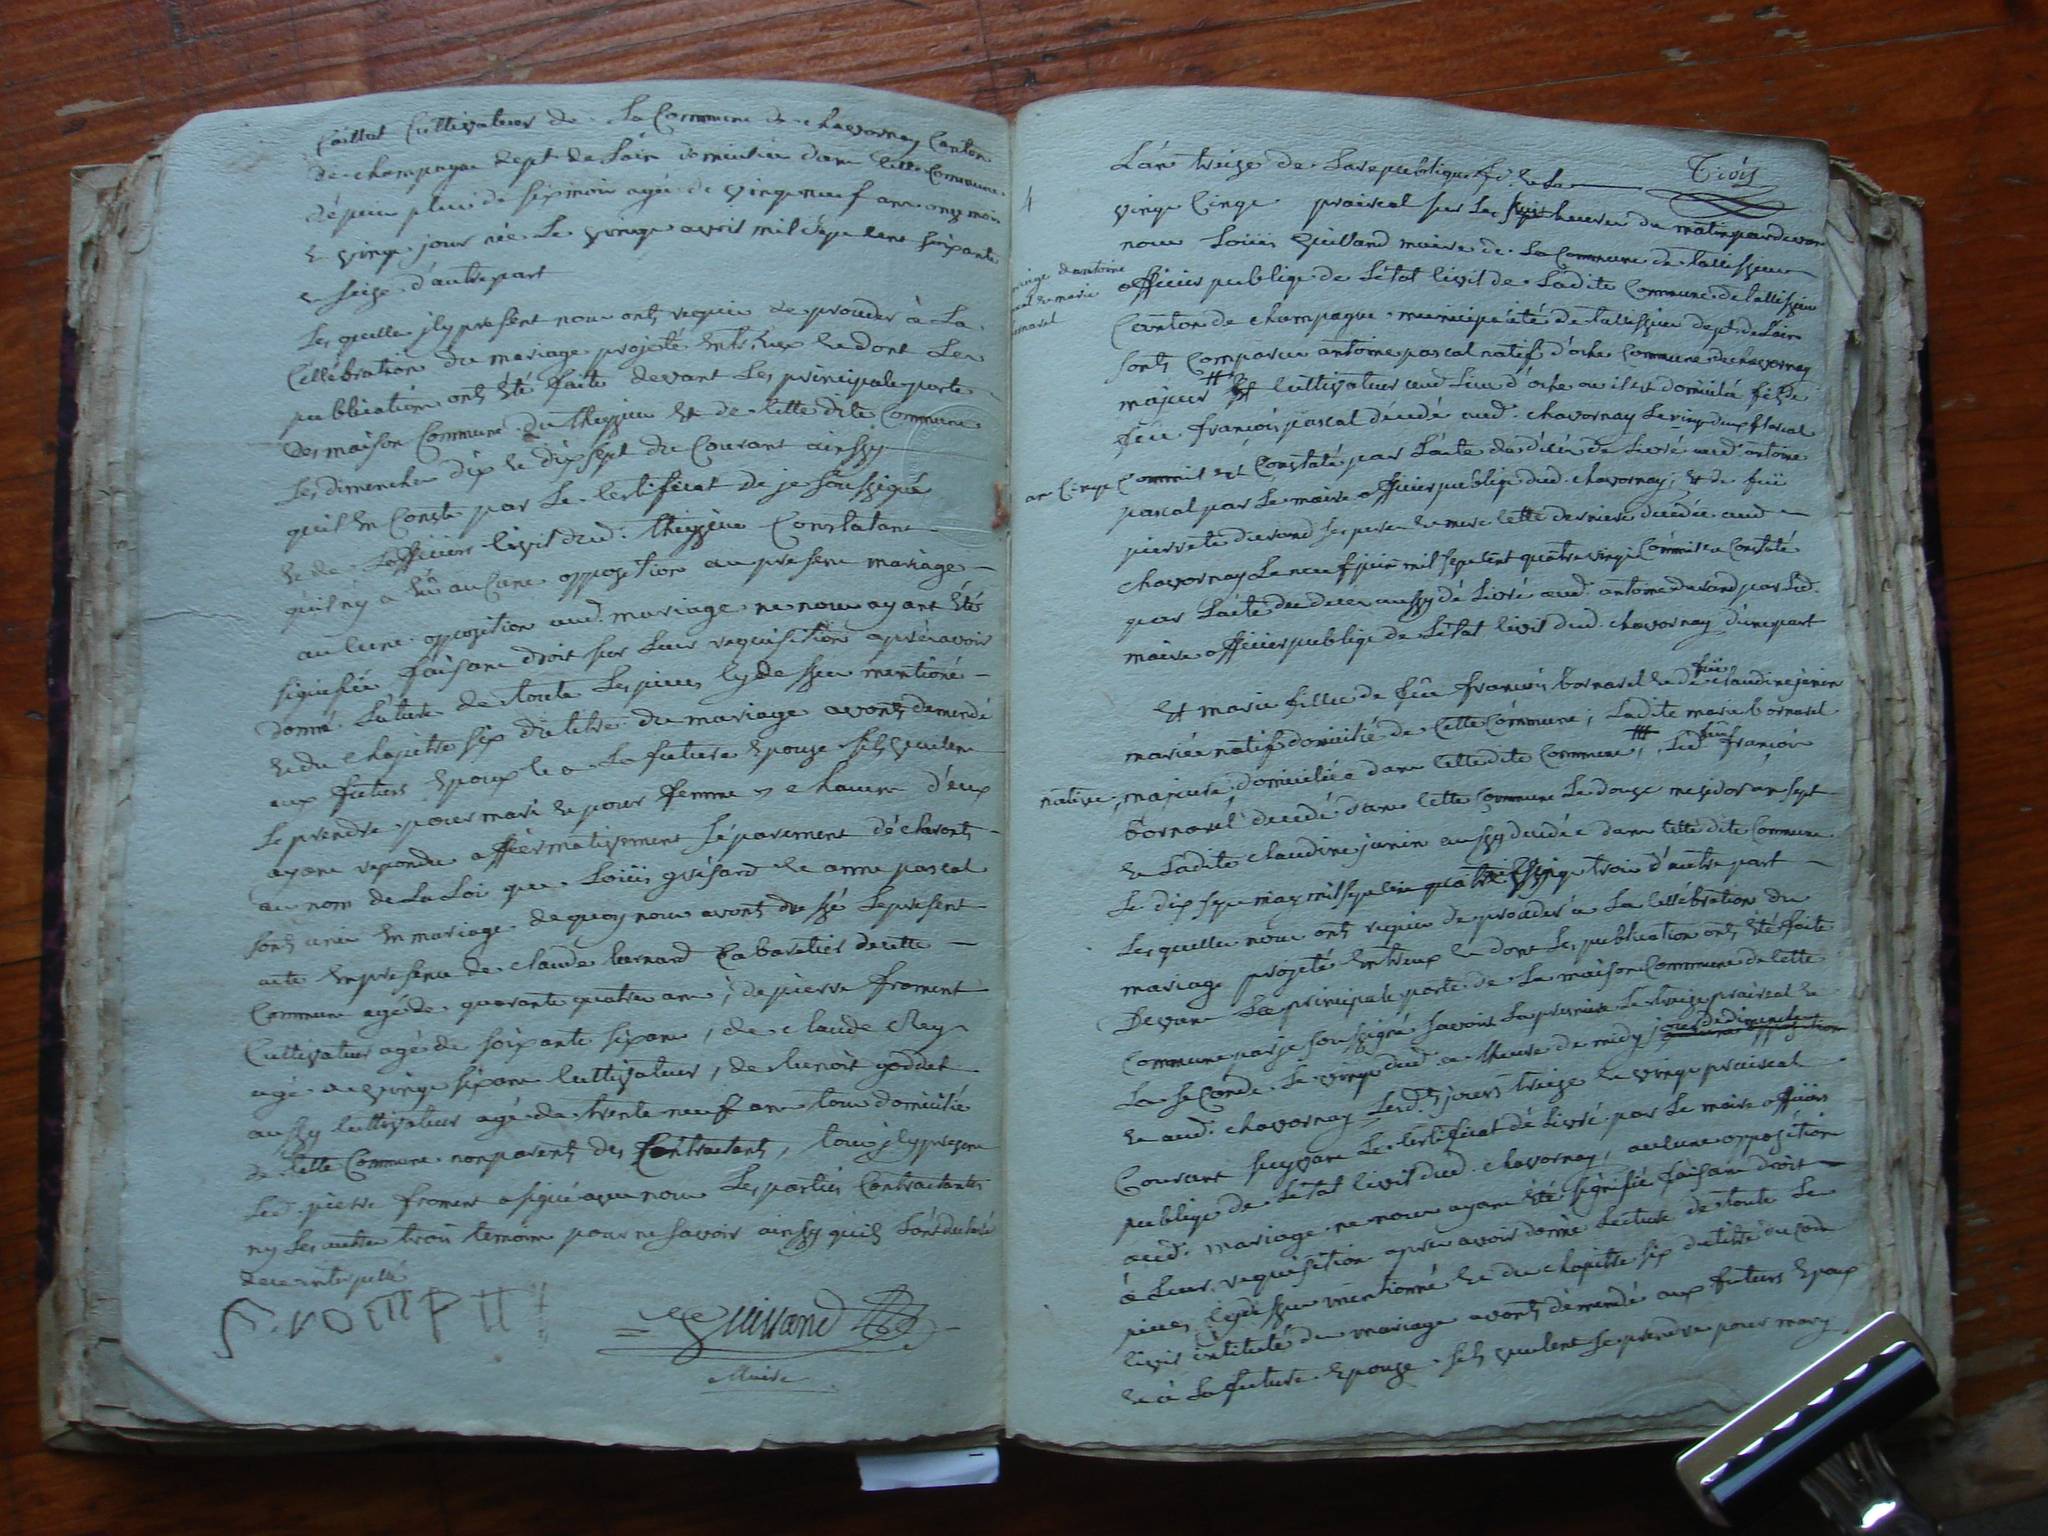 Caillot Cultivateur de La Commune de chavornay Canton
de champagne dept de Lain domicilié dans cette Commune
dépuis plus de six mois agée de vingt neuf ans onze mois
et vingt jour née Le vingt avril mil sept cent soixante
et seize d'autre part
Les quelles jly present nous onts requis de proceder à La
Cellébration du mariage projeté entr'eux et dont Les
publication onts été faite devant Les principale porte
des maison Commune du thezzieu Et de Cette dite Commune
Les dimenche dix et dix sept du Courant ainssy
quil en Conste par Le Certificat de je soussigné
et de Lofficier Civil dud. thezzieu Constatant
quil ny a eu aucune opposition au present mariage
aucune opposition aud. mariage ne nous ayant étés
signifiée faisant droit sur Leur requisition aprés avoir
donné Lecture de toute Les pieces cy dessus mentioné
et du Chapitre six du titre du mariage avonts demendé
aux futurs Epoux et a La future Epouze sils veulent
se prendre pour mari et pour femme chacun d'eux
ayant repondu affiermativement séparement déclaronts
au nom de La Loi que Loüis grisard et anne pascal
sonts unis en mariage de quoy nous avonts dressé Le present
acte en presence de claude bernard Cabaretier de cette
Commune agé de quarante quatre ans, de pierre froment
Cultivateur agé de soixante six ans, de claude Rey
agé de vingt six ans Cultivateur, de benoit goddet
aussy Cultivateur agé de trente neuf ans tous domicilié
de Cette Commune non parents des Contractants, tous jly present
Led. pierre froment a signé avec nous Les parties Contractantes
ny Les autre trois temoins pour ne savoir ainssy quils Lont déclaré
de ce interpellé
Guilland
Maire
Trois
4
Lan treize de La republique fs. et Le
vingt Cinq prairial sur Les heures du matin pardevant
nous Loüis Guilland maire de La Commune de tallissieu
officier publiqe de Létat Civil de Ladite Commune de tallissieu
mariage d'antoine
pascal et marie
bornarel
Canton de champagne municipalité de tallissieu dept de Lain
sonts Comparus antoine pascal natif d'oche Commune de chavornay
majeur Cultivateur aud. Lieu d'oche ou il est domicilié fils de
feu François pascal décédé aud. chavornay Le vingt deux floreal
an Cinq Commil est Constaté par Lacte du décés dé Livré aud. antoine
pascal par Le maire officier publiqe dud. chavornay; Et de fuë
pierrete durand ses pere et mere Cette derniere décédée aud
chavornay Le neuf juin mil sept cent quatre vingt Commil est Constaté
par Lacte du deces aussy dé Livré aud. antoine durand par Led.
maire officier publiqe de Létat Civil dud. chavornay d'une part
Et marie fillie de feu françois bornarel et de fuë claudine janin
mariée natif domicilié de Cette Commune; Ladite marie bornarel
native, majeure, domiciliée dans Cette dite Commune, Led. feu françois
bornarel decedé dans Cette Commune Le douze messidor an sept
et Ladite claudine janin aussy decedée dans Cette dite Commune
Le dix sept may mil sept cent quatre vingt trois d'autre part
Les quelles nous onts requis de proceder a La Cellébration du
mariage projeté entreux et dont Les publication onts été faite
Devant La principale porte de La maison Commune de Cette
Commune par je soussigné savoir La premiere Le treize prairial et
La seConde Le vingt dud. a Lheure de midy jour de dimenche
et aud. chavornay Lesd.ts jours treize et vingt prairial
Courant suyvant Le Certificat dé Livré par Le maire officier
publiqe de Létat Civil dud. chavornay, aucune opposition
aud. mariage ne nous ayant été signifié faisant droit
à Leur requisition aprés avoir donné Lecture de toute Le
pieces Cydessus mentionné et du chapitre six du titre du Code
Civil intitulé du mariage avonts demendé aux futurs Epoux
et à La future Epouze sils veulent se prendre pour mary